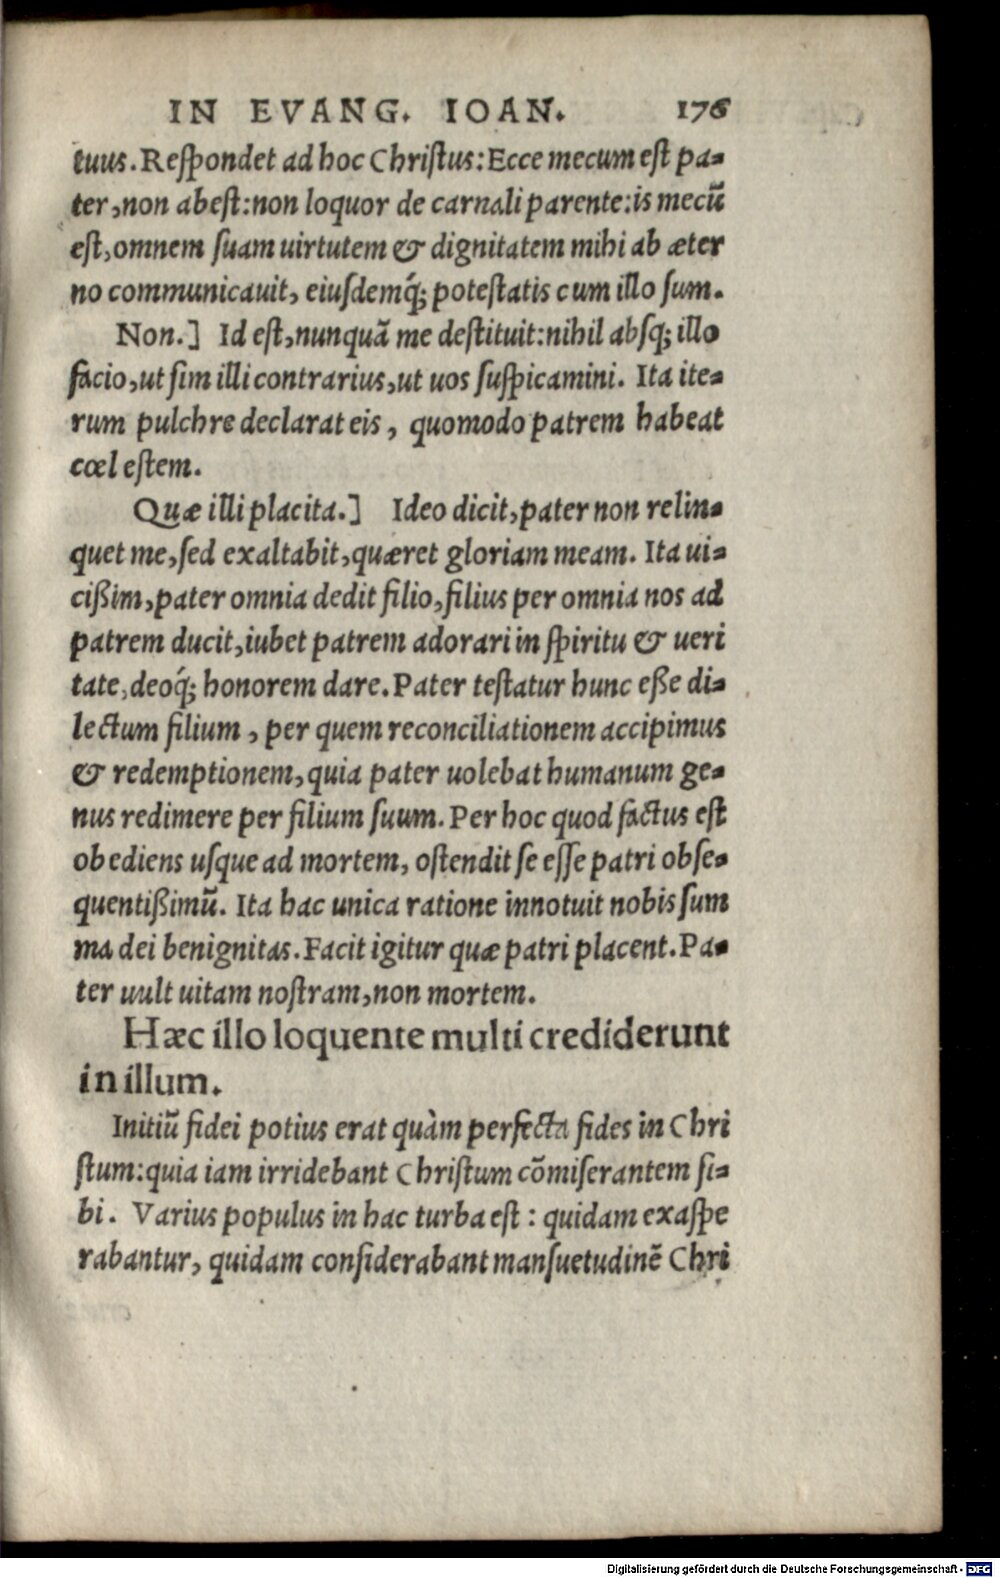 IN EVANG. IOAN. 176
tuus. Reſpondet ad hoc Chriſtus: Ecce mecum eſt pa-
ter, non abeſt: non loquor de carnali parente: is mecũ
eſt, omnem ſuam uirtutem & dignitatem mihi ab æter
no communicauit, eiuſdemq́; poteſtatis cum illo ſum.
Non.] Id eſt, nunquã me deſtituit: nihil abſq; illo
facio, ut ſim illi contrarius, ut uos ſuſpicamini. Ita ite-
rum pulchre declarat eis, quomodo patrem habeat
cœleſtem.
Quæ illi placita.] Ideo dicit, pater non relin-
quet me, ſed exaltabit, quæret gloriam meam. Ita ui-
cißim, pater omnia dedit filio, filius per omnia nos ad
patrem ducit, iubet patrem adorari in ſpiritu & ueri
tate, deoq́; honorem dare. Pater teſtatur hunc eße di-
lectum filium, per quem reconciliationem accipimus
& redemptionem, quia pater uolebat humanum ge-
nus redimere per filium ſuum. Per hoc quod factus eſt
obediens uſque ad mortem, oſtendit ſe eſſe patri obſe-
quentißimũ. Ita hac unica ratione innotuit nobis ſum
ma dei benignitas. Facit igitur quæ patri placent. Pa-
ter uult uitam noſtram, non mortem.
Hæc illo loquente multi crediderunt
in illum.
Initiũ fidei potius erat quàm perfecta fides in Chri
ſtum: quia iam irridebant Chriſtum cõmiſerantem ſi-
bi. Varius populus in hac turba eſt: quidam exaſpe
rabantur, quidam conſiderabant manſuetudinẽ Chri
Digitalisierung gefördert durch die Deutsche Forschungsgemeinschaft - DFG